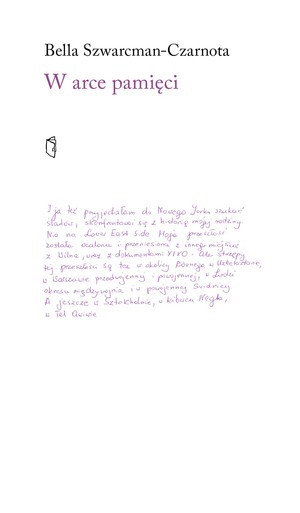 Bella Szwarcman-Czarnota
W arce pamięci
I ja też przyjechałam do Nowego Jorku szukać
śladów, skonfrontować się z historią mojej rodziny
Nie na Lower East Side. Moja przeszłość
została ocalona i przeniesiona z innego miejsca
z Wilna, wraz z dokumentami YIVO. Ale strzępy
tej przeszłości są też w okolicy Równego w
w Warszawie przedwojennej i powojennej, w Łodzi
okresu międzywojnia i w powojennej Świdnicy
A jeszcze w Sztokholmie, w kibucu Negba,
w Tel Awiwie